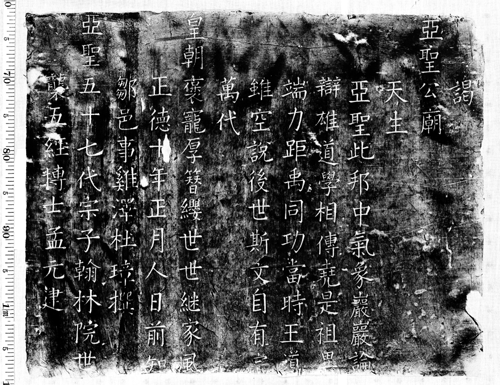 謁
亞聖公廟
天生
亞聖此邦中氣象巖巖論
辯雄道學相傳堯是祖異
端力距禹同功當時王道
雖空說後世斯文自有宗
萬代
皇朝褒寵厚簪纓世世繼家風
正德十年正月人日前知
鄒邑事雞澤杜璋撰
亞聖五十七代宗子翰林院世
襲五經博士孟元建